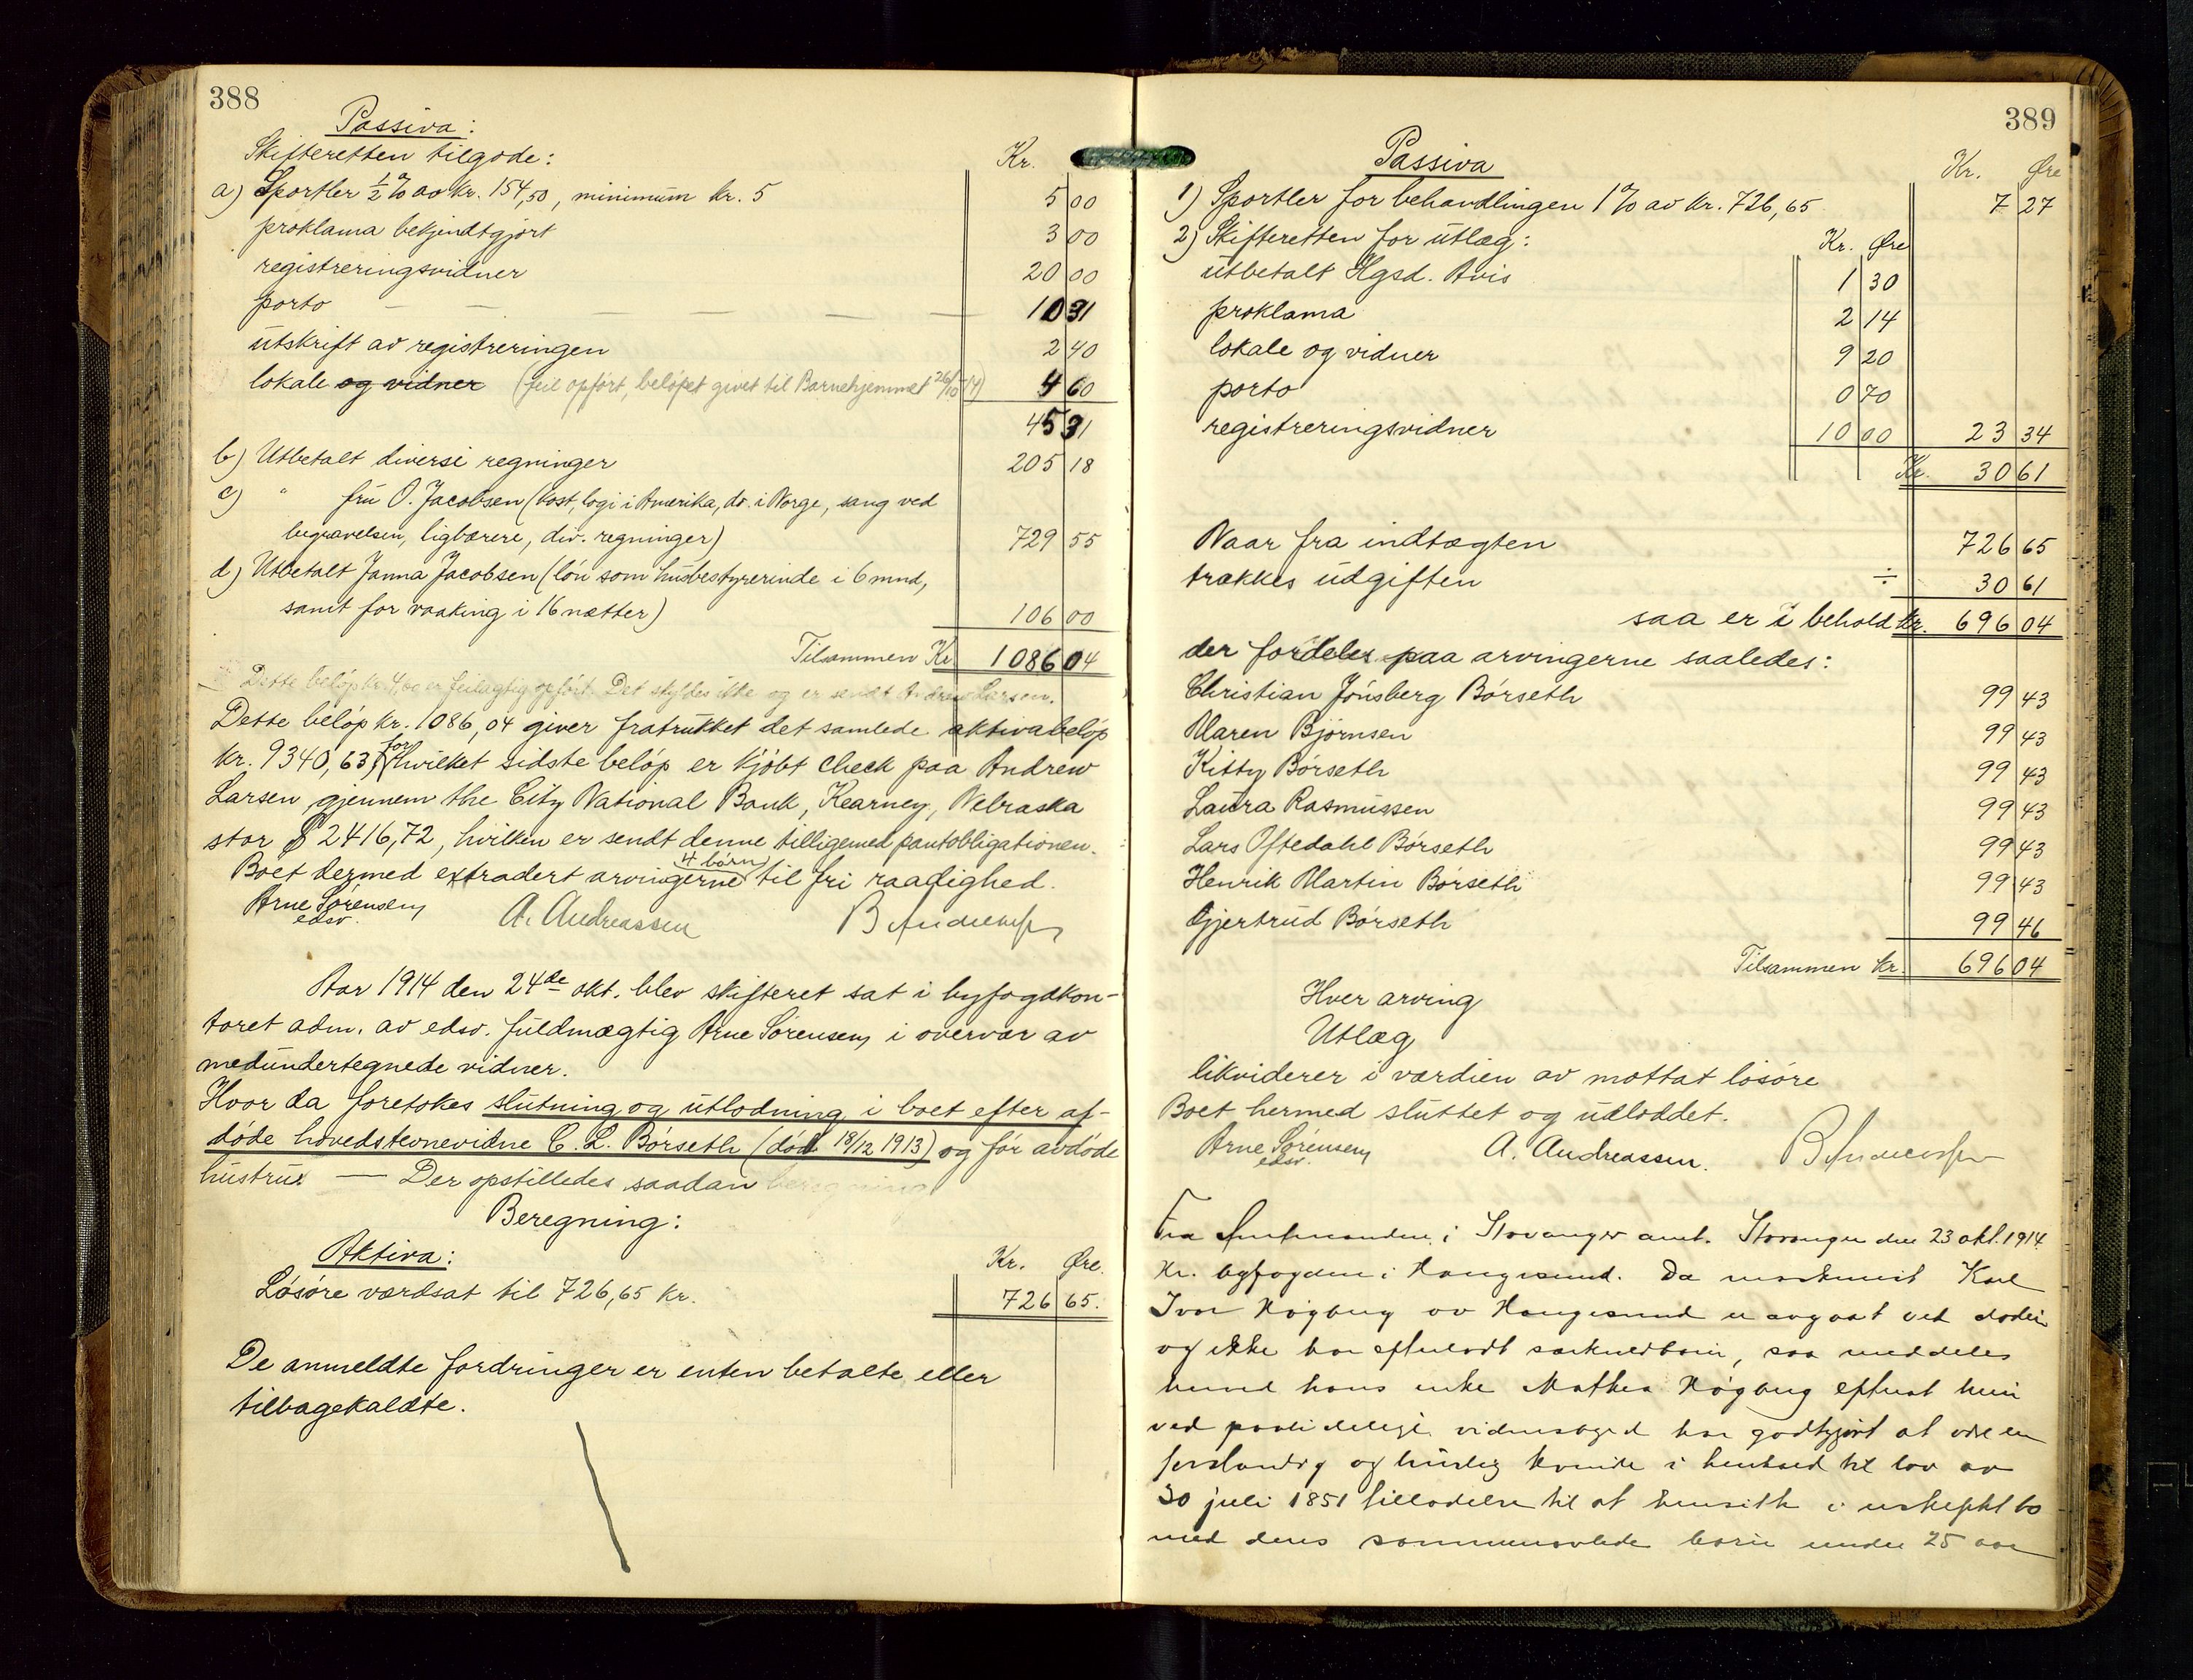 388
Passiva:
Skifteretten tilgode:
Kr.
a) Sportler ½ % av kr. 154,50, minimum kr. 5 5 00
proklama bekjendtgjort 3 00
registreringsvidner 20 00
porto — — — — — 10 31
utskrift av registreringen 2 40
lokale og vidner (feil opført, beløpet givet til Barnehjemmet 26/10 14) 4 60
45 31
b) Utbetalt diverse regninger 205 18
c) " fru O. Jacobsen (kost, logi i Amerika, do. i Norge, sang ved
begravelsen, ligbærere, div. regninger) 729 55
d) Utbetalt Janna Jacobsen (løn som husbestyrerinde i 6 mnd,
samt for vaaking i 16 nætter) 106 00
Tilsammen Kr 1086 04
Dette beløp kr. 4,60 er feilagtig opført. Det skyldes ikke og er sendt Andrew Larsen.
Dette beløp kr. 1086,04 giver fratrukket det samlede aktivabeløp
kr. 9340,63, for hvilket sidste beløp er kjøbt check paa Andrew
Larsen gjennem the City National Bank, Kearney, Nebraska
stor $ 2416,72, hvilken er sendt denne tilligemed pantobligationen.
Boet dermed extradert arvingerne 4 børn til fri raadighed.
Arne Sørensen
edsv.
A. Andreassen
Aar 1914 den 24de okt. blev skifteret sat i byfogdkon-
toret adm. av edsv. fuldmægtig Arne Sørensen i overvær av
medundertegnede vidner.
Hvor da foretokes slutning og utlodning i boet efter af-
døde hovedstevnevidne C. L. Børseth (død 18/12 1913) og før avdøde
hustru. — Der opstilledes saadan beregning
Beregning:
Aktiva:
Kr. Øre.
Løsøre værdsat til 726,65 kr. 726 65.
De anmeldte fordringer er enten betalte eller
tilbagekaldte.
389
Passiva
Kr. Øre
1) Sportler for behandlingen 1 % av kr. 726,65 7 27
2) Skifteretten for utlæg: Kr. Øre
utbetalt Hgsd. Avis 1 30
proklama 2 14
lokale og vidner 9 20
porto 0 70
registreringsvidner 10 00 23 34
Kr. 30 61
Naar fra indtægten 726 65
trækkes udgiften ÷ 30 61
saa er i behold kr. 696 04
der fordeles paa arvingerne saaledes:
Christian Jønsberg Børseth 99 43
Maren Bjørnsen 99 43
Kitty Børseth 99 43
Laura Rasmussen 99 43
Lars Oftedahl Børseth 99 43
Henrik Martin Børseth 99 43
Gjertrud Børseth 99 46
Tilsammen kr. 696 04
Hver arving
Utlæg
likviderer i værdien av mottat løsøre
Boet hermed sluttet og udloddet.
Arne Sørensen
edsv.
A. Andreassen.
Fra Amtmanden i Stavanger amt. Stavanger den 23 okt. 1914.
Hr. byfogden i Haugesund. Da maskinist Karl
Ivar Høgberg av Haugesund er avgaat ved døden
og ikke har efterladt særkuldbørn, saa meddeles
herved hans enke Mathea Høgberg efterat hun
ved paalidelige vidnesbyrd har godtgjort at være en
forstandig og huslig kvinde i henhold til lov av
30 juli 1851 tilladelse til at hensitte i uskiftet bo
med deres sammenavlede børn under 25 aar